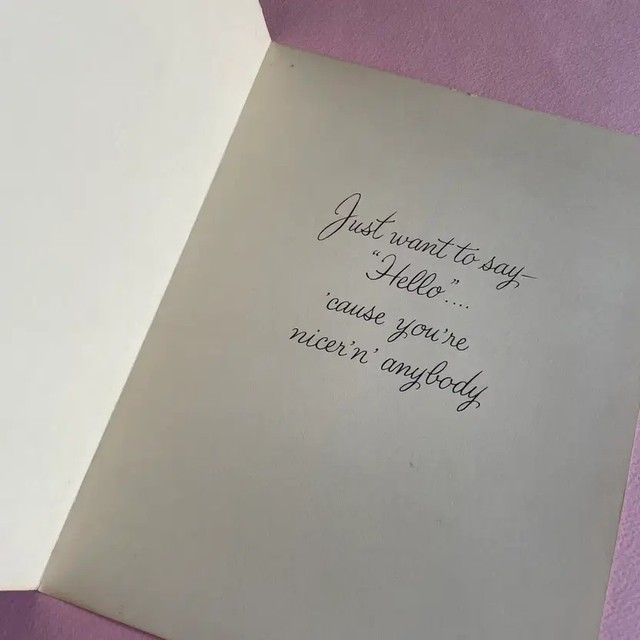 Just want to say
"Hello"....
'cause you're
nicer'n' anybody